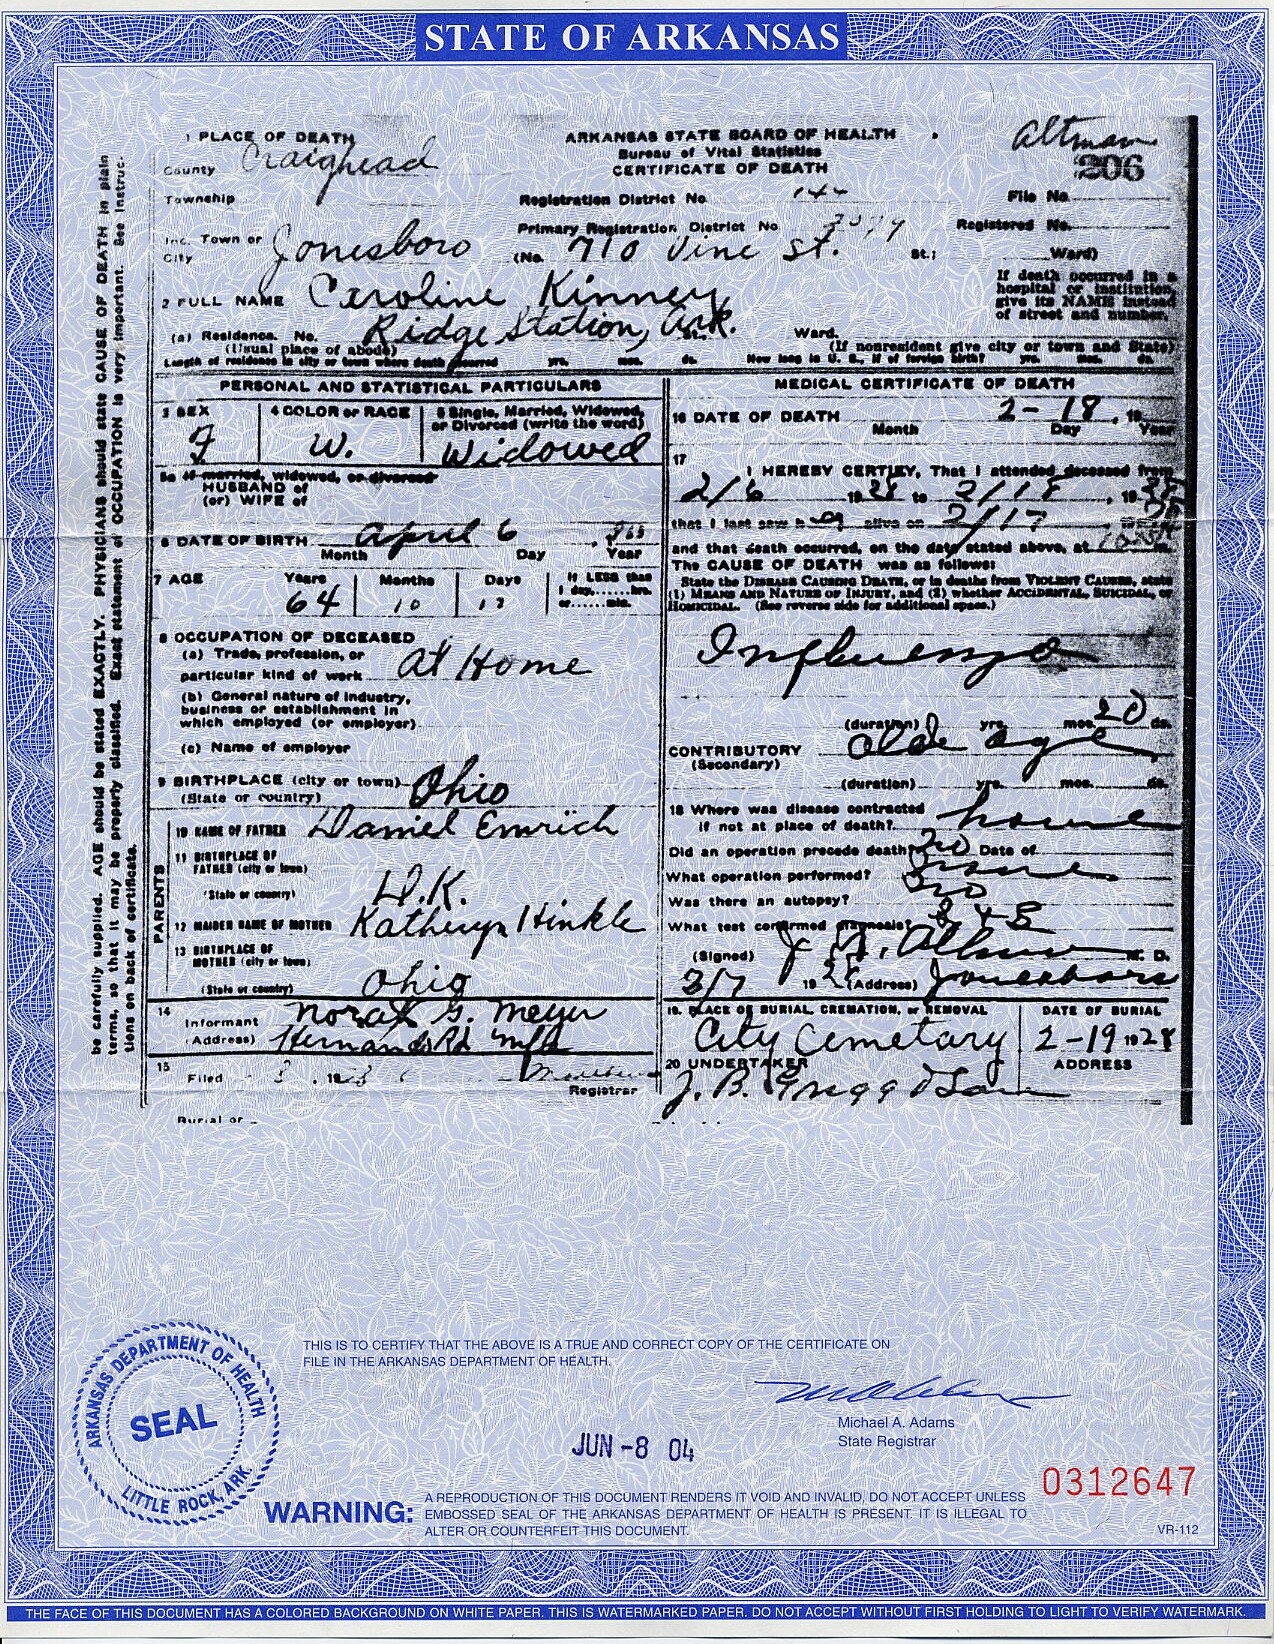 STATE OF ARKANSAS
1 PLACE OF DEATH
ARKANSAS STATE BOARD OF HEALTH
Altman
County Craighead
Bureau of Vital Statistics
CERTIFICATE OF DEATH
206
Township
Registration District No
File No.
Primary Registration District No.
Registered No.
Inc. Town or City Jonesboro (No. 710 Vine St. St.; Ward)
If death occurred in a hospital or institution, give its NAME instead of street and number.
2 FULL NAME Caroline Kinney
(a) Residence. No. Ridge Station, Ark. St. Ward.
(Usual place of abode)
(If nonresident give city or town and State)
Length of residence in city or town where death occurred yrs. mos. ds. How long in U. S., if of foreign birth? yrs. mos. ds.
PERSONAL AND STATISTICAL PARTICULARS
3 SEX
F
4 COLOR or RACE
W.
5 Single, Married, Widowed, or Divorced (write the word)
Widowed
5a If married, widowed, or divorced
HUSBAND of
(or) WIFE of
6 DATE OF BIRTH April 6
Month Day Year
7 AGE Years Months Days If LESS than
64 10 1 day, hrs.
or min.
8 OCCUPATION OF DECEASED
(a) Trade, profession, or
particular kind of work At Home
(b) General nature of industry,
business or establishment in
which employed (or employer)
(c) Name of employer
9 BIRTHPLACE (city or town)
(State or country) Ohio
PARENTS
10 NAME OF FATHER Daniel Emrich
11 BIRTHPLACE OF
FATHER (city or town)
(State or country) D.K.
12 MAIDEN NAME OF MOTHER Katheryn Hinkle
13 BIRTHPLACE OF
MOTHER (city or town)
(State or country) Ohio
14
Informant Norah G. Meyer
(Address) Hernando Rd
15
Filed
Registrar
Burial or
MEDICAL CERTIFICATE OF DEATH
16 DATE OF DEATH 2-18, 19
Month Day Year
17
I HEREBY CERTIFY, That I attended deceased from
2/6 1928 to 2/18, 1928
that I last saw her alive on 2/17
and that death occurred, on the date stated above, at
The CAUSE OF DEATH was as follows:
State the DISEASE CAUSING DEATH, or in deaths from VIOLENT CAUSES, state
(1) MEANS AND NATURE OF INJURY, and (2) whether ACCIDENTAL, SUICIDAL, or
HOMICIDAL. (See reverse side for additional space.)
Influenza
(duration) yrs. mos. 20 ds.
CONTRIBUTORY olde age
(Secondary)
(duration) yrs. mos. ds.
18 Where was disease contracted
if not at place of death? home
Did an operation precede death? no Date of
What operation performed? none
Was there an autopsy? no
What test confirmed diagnosis?
(Signed) M. D.
1928 (Address) Jonesboro
19. PLACE OF BURIAL, CREMATION, or REMOVAL
City Cemetary
DATE OF BURIAL
2-19 1928
20 UNDERTAKER
J. B. Gregg & Son
ADDRESS
be carefully supplied. AGE should be stated EXACTLY. PHYSICIANS should state CAUSE OF DEATH in plain
terms, so that it may be properly classified. Exact statement of OCCUPATION is very important. See instruc-
tions on back of certificate.
THIS IS TO CERTIFY THAT THE ABOVE IS A TRUE AND CORRECT COPY OF THE CERTIFICATE ON
FILE IN THE ARKANSAS DEPARTMENT OF HEALTH.
ARKANSAS DEPARTMENT OF HEALTH
SEAL
LITTLE ROCK, ARK.
Michael A. Adams
State Registrar
JUN -8 04
0312647
WARNING: A REPRODUCTION OF THIS DOCUMENT RENDERS IT VOID AND INVALID, DO NOT ACCEPT UNLESS
EMBOSSED SEAL OF THE ARKANSAS DEPARTMENT OF HEALTH IS PRESENT. IT IS ILLEGAL TO
ALTER OR COUNTERFEIT THIS DOCUMENT.
VR-112
THE FACE OF THIS DOCUMENT HAS A COLORED BACKGROUND ON WHITE PAPER. THIS IS WATERMARKED PAPER. DO NOT ACCEPT WITHOUT FIRST HOLDING TO LIGHT TO VERIFY WATERMARK.